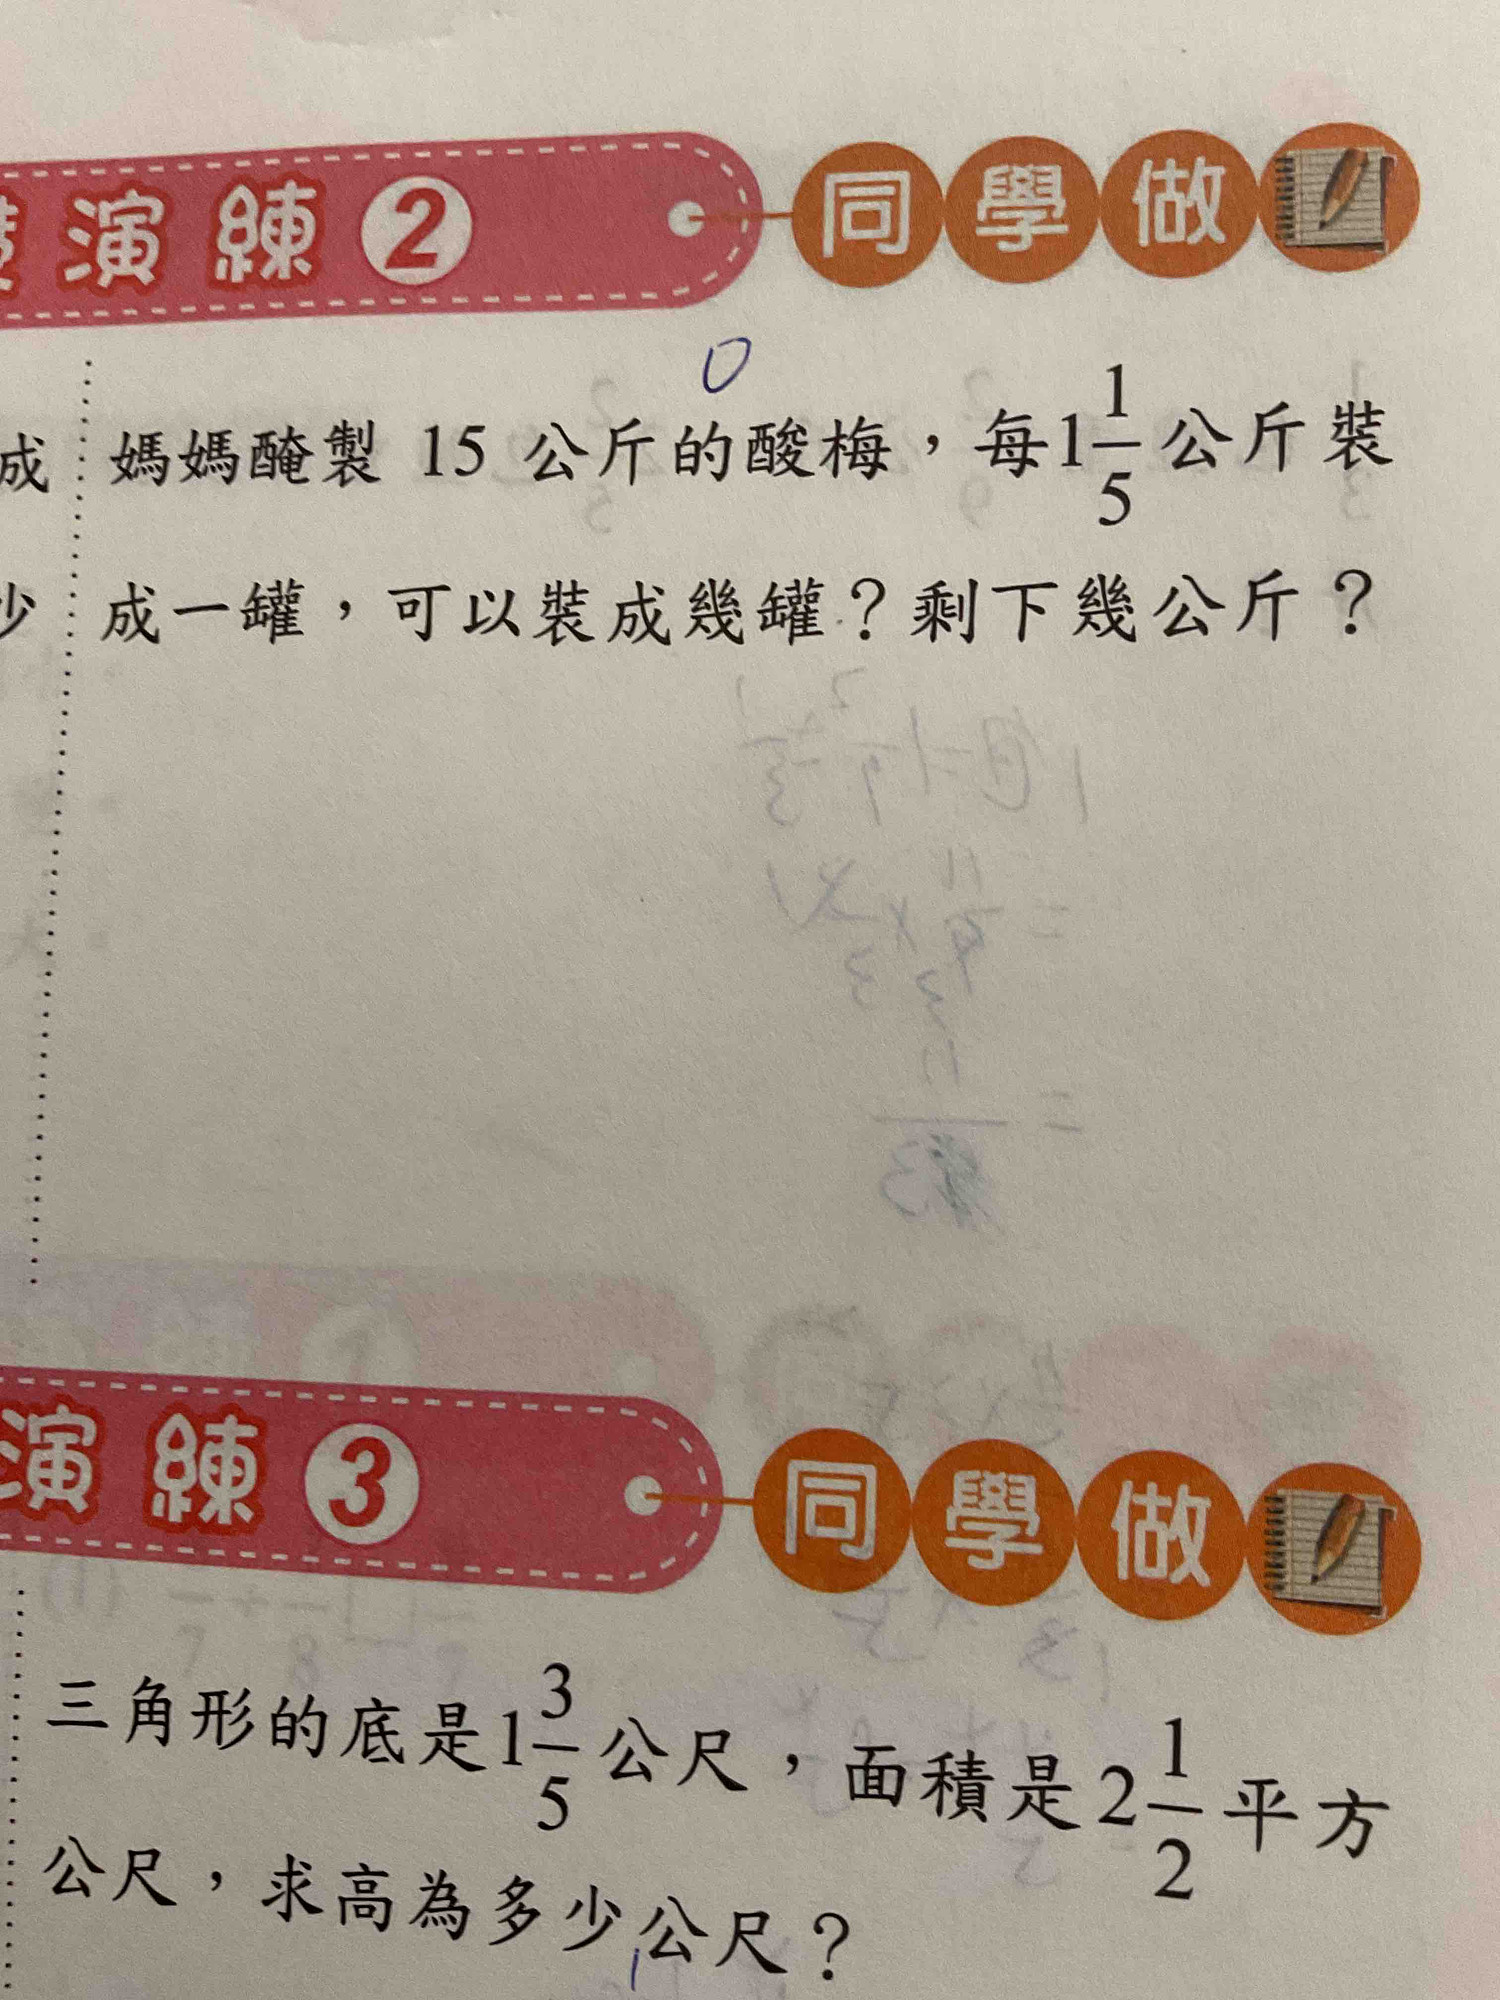 演練 2 同學做
0
成 媽媽醃製 15 公斤的酸梅，每1 1/5 公斤裝
少 成一罐，可以裝成幾罐？剩下幾公斤？
演練 3 同學做
三角形的底是1 3/5 公尺，面積是 2 1/2 平方
公尺，求高為多少公尺？